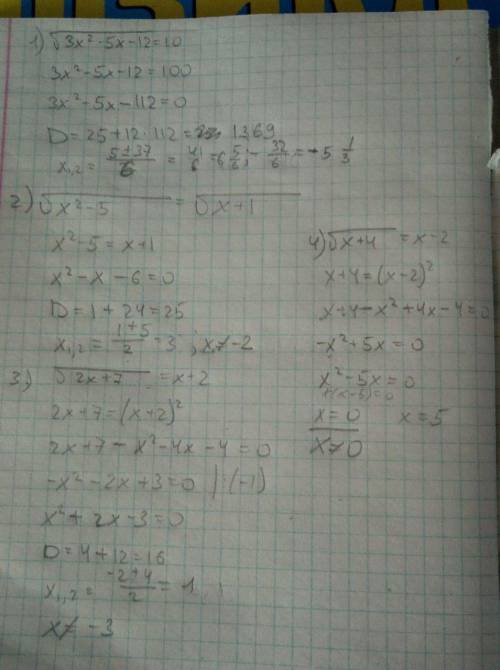 1) √3x²-5x-12=10
3x²-5x-12=100
3x²-5x-112=0
D=25+12·112= 1369
x₁,₂= 5±37/6 = 41/6 =6 5/6; -32/6=-5 1/3
2) √x²-5 = √x+1
x²-5=x+1
x²-x-6=0
D=1+24=25
x₁,₂= 1±5/2 =3 ; x≠-2
3) √2x+7 =x+2
2x+7=(x+2)²
2x+7-x²-4x-4=0
-x²-2x+3=0 |:(-1)
x²+2x-3=0
D=4+12=16
x₁,₂= -2±4/2 = 1
x≠-3
4) √x+4 =x-2
x+4=(x-2)²
x+4-x²+4x-4=0
-x²+5x=0
x²-5x=0
x(x-5)=0
x=0 x=5
x≠0